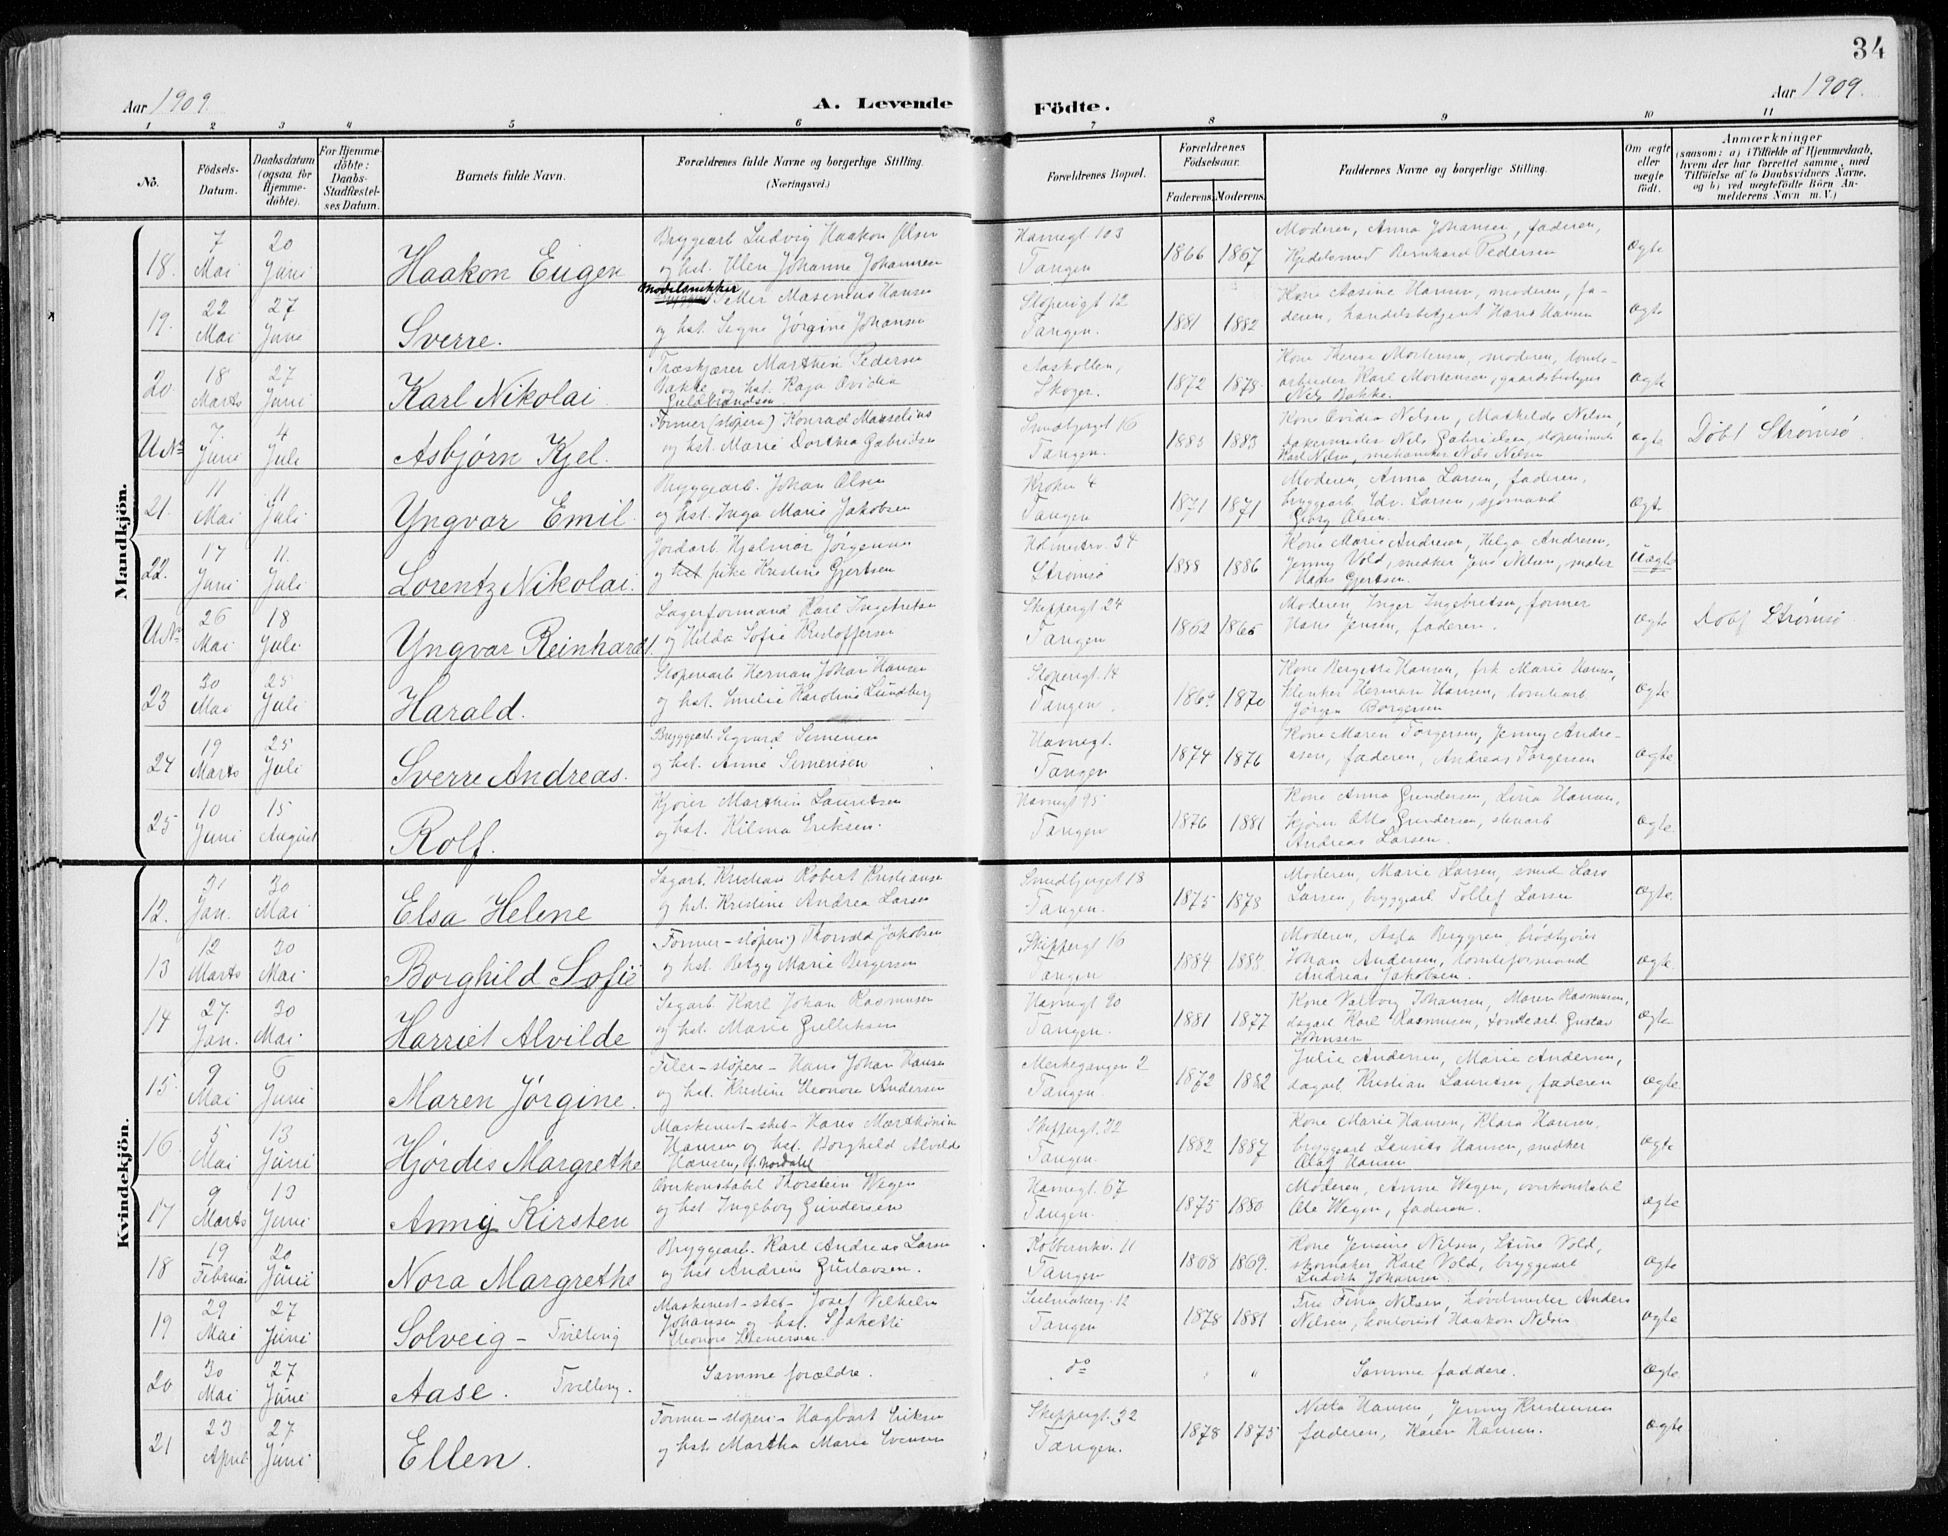 34
Aar 1909.
A. Levende
Födte.
Aar 1909.
1 2 3 4 5 6 7 8 9 10 11
No.
Födsels-
Datum.
Daabsdatum
(ogsaa for
Hjemme-
döbte).
For Hjemme-
döbte:
Daabs-
Stadfæstel-
ses Datum.
Barnets fulde Navn.
Forældrenes fulde Navne og borgerlige Stilling.
(Næringsvei.)
Forældrenes Bopæl.
Forældrenes
Födselsaar.
Faderens. Moderens.
Faddernes Navne og borgerlige Stilling.
Om ægte
eller
uægte
födt.
Anmærkninger
(saasom: a) i Tilfælde af Hjemmedaab,
hvem der har forrettet samme, med
Tilföielse af to Daabsvidners Navne,
og b) ved uægtefödte Börn An-
melderens Navn m. V.)
Mandkjön.
18. 7 Mai 20 Juni Haakon Eugen
Bryggearb. Ludvig Haakon Olsen
og hst. Elen Johanne Johannesen
Havnegt. 103
Tangen
1866 1867
Moderen, Anna Johansen, faderen,
Kjedelsmed Bernhard Pedersen
ægte
19. 22 Mai 27 Juni Sverre.
Modelsnekker Petter Masenius Hansen
og hst. Signe Jørgine Johansen
Støperigt 12
Tangen.
1881 1882
Kone Aasine Hansen, moderen, fa-
deren, handelsbetjent Hans Hansen
ægte
20 18 Marts 27 Juni Karl Nikolai
Træskjærer Marthin Pedersen
Bakke og hst. Kaja Ovidia
Guldbrandsen.
Aaskollen,
Skoger.
1872 1878
Kone Therese Mortensen, moderen, tomte-
arbeider Karl Mortensen, gaardsbestyrer
Nils Bakke.
ægte
U.No. 7 Juni 4 Juli Asbjørn Kjel.
Former (støperi) Konrad Marselius
og hst. Marie Dorthea Gabrielsen
Smedbjerget 16
Tangen.
1883 1883
Kone Ovidia Nielsen, Mathilde Nilsen,
bakermester Nils Gabrielsen, støperimester
Karl Nilsen, mekaniker Nils Nilsen
ægte
Døbt Strømsø.
21. 11 Mai 11 Juli Yngvar Emil.
Bryggearb. Johan Olsen
og hst. Inga Marie Jakobsen
Kroken 4
Tangen
1871 1871
Moderen, Anna Larsen, faderen,
bryggearb. Edv. Larsen, sjømand
Georg Olsen.
ægte
22. 17 Juni 11 Juli Lorentz Nikolai.
Jordarb. Hjalmar Jørgensen
og hst pike Kristine Gjertsen
Holmestrv. 34
Strømsø
1888 1886
Kone Marie Andresen, Helga Andresen,
Jenny Vold, snedker Jens Nilsen, maler
Hans Gjertsen.
Uægte
U.No. 26 Mai 18 Juli Yngvar Reinhardt.
Lagerformand Karl Ingebretsen
og Hilda Sofie Kristoffersen
Skippergt 24
Tangen
1862 1865
Moderen, Inger Ingebretsen, former
Hans Jensen, faderen.
ægte
Døbt Strømsø
23 30 Mai 25 Juli Harald.
Støperiarb Herman Johan Hansen
og hst. Emilie Karoline Lundberg
Støperigt. 14
Tangen.
1869 1870
Kone Bergitte Hansen, frk Marie Hansen,
klinker Herman Hansen, tomtearb
Jørgen Borgersen
ægte
24 19 Marts 25 Juli Sverre Andreas.
Bryggearb. Sigvard Simensen
og hst. Anne Simensen
Havnegt.
Tangen
1874 1876
Kone Maren Torgersen, Jenny Andre-
asen, faderen, Andreas Torgersen
ægte
25 10 Juni 15 August Rolf.
Kjører Marthin Lauritsen
og hst. Hilma Eriksen.
Havnegt 95
Tangen
1876 1881
Kone Anna Gundersen, Lina Hansen,
kjører Otto Gundersen, stenarb
Andreas Larsen.
ægte
Kvindekjön.
12. 31 Jan. 30 Mai Elsa Helene
Sagarb. Kristian Robert Kristiansen
og hst. Kristine Andrea Larsen
Smedbjerget 18
Tangen.
1875 1878
Moderen, Marie Larsen, smed Lars
Larsen, bryggearb Tollef Larsen
ægte.
13 12 Marts 30 Mai Borghild Sofie
Former - støperi) Thorvald Jakobsen
og hst. Betzy Marie Bergersen
Skippergt 16
Tangen
1884 1888
Moderen, Asta Berggren, brødkjører
Johan Andersen, tomteformand
Andreas Jakobsen.
ægte
14 27. Jan. 30 Mai. Harriet Alvilde
Sagarb. Karl Johan Rasmussen
og hst. Marie Gulliksen
Havnegt 90
Tangen.
1881 1877
Kone Valborg Johansen, Maren Rasmussen,
dagarb Karl Rasmussen, tomtearb Gustav
Johansen
ægte
15 9 Mai 6 Juni Maren Jørgine.
Filer - støperi - Hans Johan Hansen
og hst. Kristine Eleonore Andersen
Merkegangen 2
Tangen.
1872 1882
Julie Andersen, Marie Andersen,
dagarb Kristian Lauritsen, faderen
ægte
16 5 Mai 13 Juni Hjørdis Margrethe
Maskinist - skib - Hans Marthinius
Hansen og hst. Borghild Alvilde
Hansen, f. Nordahl
Skippergt. 22
Tangen.
1882 1887
Kone Marie Hansen, Klara Hansen,
bryggearb Laurits Hansen, snedker
Olaf Hansen
ægte
17 9 Marts 13 Juni Anny Kirsten
Overkonstabel Thorstein Wegen
og hst. Ingeborg Gundersen
Havnegt. 67
Tangen.
1875 1880
Moderen, Anne Wegen, overkonstabel
Ole Wegen, faderen.
ægte
18 19 Februar 20 Juni Nora Margrethe
Bryggearb. Karl Andreas Larsen
og hst Andrine Gustavsen.
Kobbervikv. 11
Tangen
1868 1869.
Kone Jensine Nilsen, Stine Vold,
skomaker Karl Vold, bryggearb
Ludvik Johansen.
ægte
19 29 Mai 27 Juni Solveig - Tvilling
Maskinist - skib - Josef Vilhelm
Johansen og hst.
Eleonore
Seilmakerg. 12
Tangen
1878 1881
Fru Fina Nilsen, høvelmester Anders
Nilsen, kontorist Haakon Nilsen
ægte
20 30 Mai 27 Juni Aase. Tvilling.
Samme forældre.
do
" "
Samme faddere.
ægte
21 23 April 27 Juni Ellen.
Former - støperi - Hagbart Eriksen
og hst. Martha Marie Svensen
Skippergt. 32
Tangen.
1878 1875
Nilla Hansen, Jenny Kristensen
faderen, Karen Hansen.
ægte